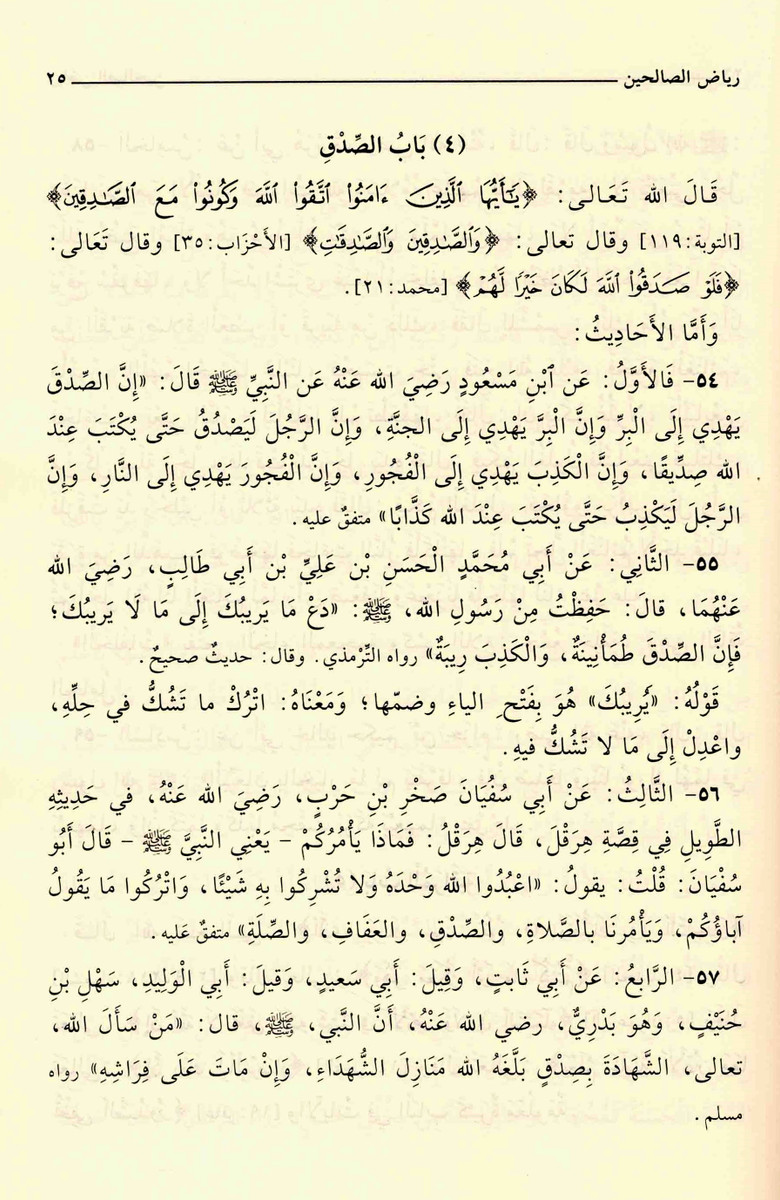 رياض الصالحين ٢٥
(٤) بَابُ الصِّدْقِ
قَالَ الله تَعَـالى: ﴿يَٰٓأَيُّهَا ٱلَّذِينَ ءَامَنُوا۟ ٱتَّقُوا۟ ٱللَّهَ وَكُونُوا۟ مَعَ ٱلصَّٰدِقِينَ﴾
[التوبة:١١٩] وقال تعالى: ﴿وَٱلصَّٰدِقِينَ وَٱلصَّٰدِقَٰتِ﴾ [الأَحْزَاب:٣٥] وقال تَعَالى:
﴿فَلَوْ صَدَقُوا۟ ٱللَّهَ لَكَانَ خَيْرًا لَّهُمْ﴾ [محمد:٢١].
وَأَمَّا الأَحَادِيثُ:
٥٤- فَالأَوَّلُ: عَن ٱبْنِ مَسْعُودٍ رَضِيَ الله عَنْهُ عَن النَّبِيِّ ﷺ قَالَ: «إِنَّ الصِّدْقَ
يَهْدِي إِلَى الْبِرِّ وَإِنَّ الْبِرَّ يَهْدِي إِلَى الجنَّةِ، وَإِنَّ الرَّجُلَ لَيَصْدُقُ حَتَّى يُكْتَبَ عِنْدَ
الله صِدِّيقًا، وَإِنَّ الْكَذِبَ يَهْدِي إِلَى الْفُجُورِ، وَإِنَّ الْفُجُورَ يَهْدِي إِلَى النَّارِ، وَإِنَّ
الرَّجُلَ لَيَكْذِبُ حَتَّى يُكْتَبَ عِنْدَ الله كَذَّابًا» متفقٌ عليه.
٥٥- الثَّانِي: عَنْ أَبِي مُحَمَّدٍ الْحَسَنِ بْن عَلِيِّ بْن أَبِي طَالِبٍ، رَضِيَ الله
عَنْهُمَا، قالَ: حَفِظْتُ مِنْ رَسُولِ الله، ﷺ: «دَعْ مَا يَرِيبُكَ إِلَى مَا لَا يَرِيبُكَ؛
فَإِنَّ الصِّدْقَ طُمَأْنِينَةٌ، وَالْكَذِبَ رِيبَةٌ» رواه التِّرْمذي. وقال: حديثٌ صحيحٌ.
قَوْلُهُ: «يُرِيبُكَ» هُوَ بِفَتْحِ الياءِ وضمّها؛ وَمَعْنَاهُ: اتْرُكْ ما تَشُكُّ في حِلِّهِ،
واعْدِلْ إِلَى مَا لا تَشُكُّ فيهِ.
٥٦- الثَّالِثُ: عَنْ أَبِي سُفْيَانَ صَخْرِ بْنِ حَرْبٍ، رَضِيَ الله عَنْهُ، في حَدِيثِهِ
الطَّوِيلِ فِي قِصَّةِ هِرَقْلَ، قَالَ هِرَقْلُ: فَمَاذَا يَأْمُرُكُمْ - يَعْنِي النَّبِيَّ ﷺ - قَالَ أَبُو
سُفْيَانَ: قُلْتُ: يقولُ: «اعْبُدُوا الله وَحْدَهُ وَلا تُشْرِكُوا بِهِ شَيْئًا، وَاتْرُكُوا مَا يَقُولُ
آباؤُكُمْ، وَيَأْمُرنَا بالصَّلاةِ، والصِّدْقِ، والعَفَافِ، والصِّلَةِ» متفقٌ عَليه.
٥٧- الرَّابعُ: عَنْ أَبِي ثَابتٍ، وَقِيلَ: أَبِي سَعيدٍ، وَقيلَ: أَبِي الْوَلِيدِ، سَهْلِ بْنِ
حُنَيْفٍ، وَهُوَ بَدْرِيٌّ، رضي الله عَنْهُ، أَنَّ النَّبي، ﷺ، قال: «مَنْ سَأَلَ الله،
تعالى، الشَّهَادَةَ بِصِدْقٍ بَلَّغَهُ الله مَنَازِلَ الشُّهَدَاءِ، وَإِنْ مَاتَ عَلَى فِرَاشِهِ» رواه
مسلم.